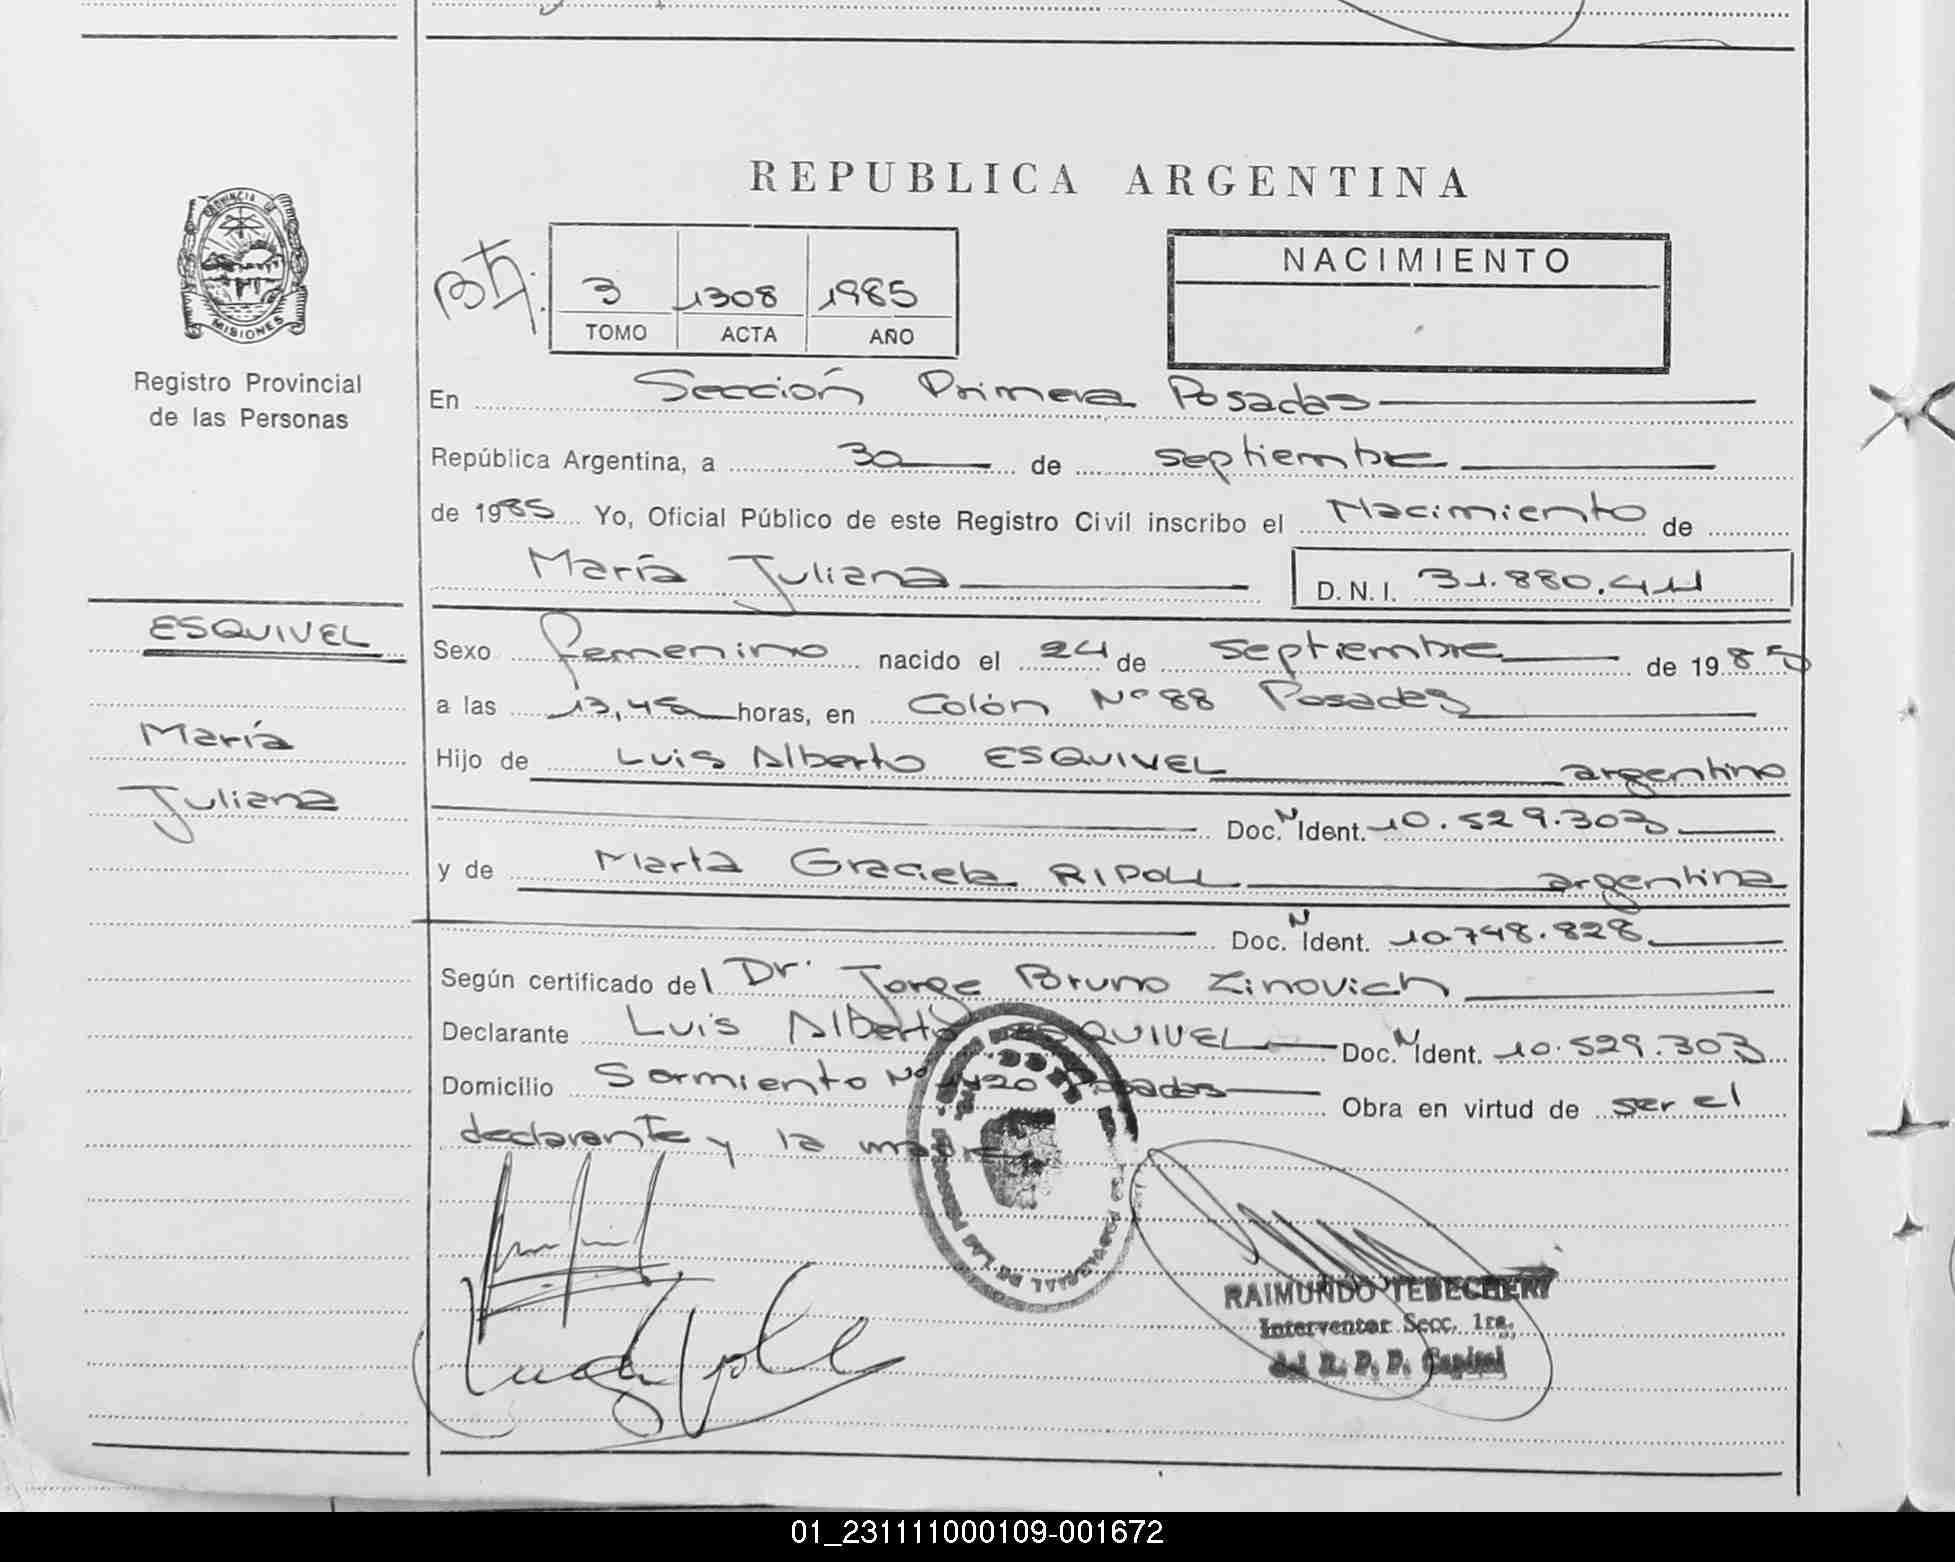 REPUBLICA ARGENTINA
PROVINCIA DE
MISIONES
Registro Provincial
de las Personas
3 1308 1985
TOMO ACTA AÑO
NACIMIENTO
En Sección Primera Posadas
República Argentina, a 30 de septiembre
de 1985 Yo, Oficial Público de este Registro Civil inscribo el Nacimiento de
María Juliana D.N.I. 31.880.411
ESQUIVEL
María
Juliana
Sexo femenino nacido el 24 de septiembre de 1985
a las 13,45 horas, en Colón Nº 88 Posadas
Hijo de Luis Alberto ESQUIVEL argentino
Doc. N Ident. 10.529.303
y de Marta Graciela RIPOLL argentina
Doc. N Ident. 10.748.828
Según certificado del Dr. Jorge Bruno Zinovich
Declarante Luis Alberto ESQUIVEL Doc. N Ident. 10.529.303
Domicilio Sarmiento Nº 420 Posadas Obra en virtud de ser el
declarante y la madre
RAIMUNDO
Interventor Secc. 1ra.
del R. P. P. Capital
01_231111000109-001672